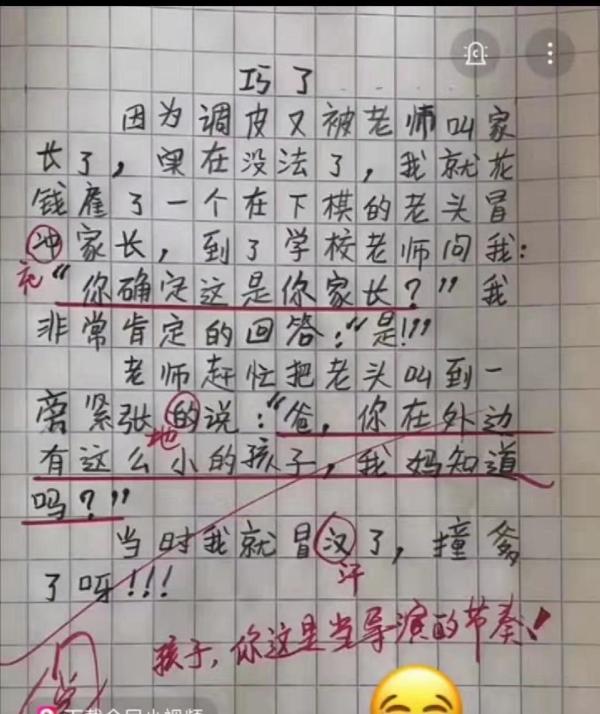 巧了
因为调皮又被老师叫家
长了，实在没法了，我就花
钱雇了一个在下棋的老头冒
冲家长，到了学校老师问我：
充
“你确定这是你家长？”我
非常肯定的回答：“是！！”
老师赶忙把老头叫到一
旁紧张的说：“爸，你在外边
地
有这么小的孩子，我妈知道
吗？”
当时我就冒汉了，撞爹
汗
了呀！！！
孩子，你这是当导演的节奏！